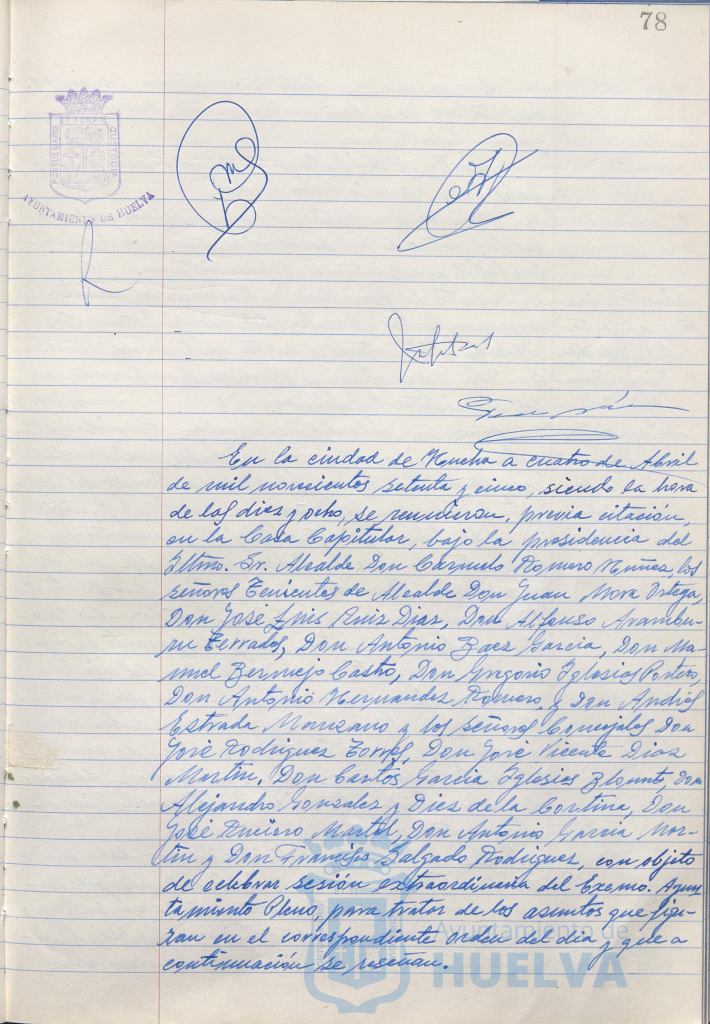 78
PORTUS MARIS
ET TERRAE
CUSTODIA
AYUNTAMIENTO DE HUELVA
En la ciudad de Huelva a cuatro de Abril
de mil novecientos setenta y cinco, siendo la hora
de las diez y ocho, se reunieron, previa citación,
en la Casa Capitular, bajo la presidencia del
Iltmo. Sr. Alcalde Don Carmelo Romero Núñez, los
señores Tenientes de Alcalde Don Juan Mora Ortega,
Don José Luis Ruiz Díaz, Don Alfonso Arambu-
ru Terrados, Don Antonio Baez García, Don Ma-
nuel Bermejo Castro, Don Gregorio Iglesias Portero,
Don Antonio Hernandez Romero, y Don Andrés
Estrada Manzano y los señores Concejales Don
José Rodriguez Torres, Don José Vicente Díaz
Martin, Don Carlos García Iglesias Blount, Don
Alejandro Gonzalez y Diez de la Cortina, Don
José Martel, Don Antonio García Mar-
tín y Don Francisco Salgado Rodriguez, con objeto
de celebrar sesión extraordinaria del Excmo. Ayun
tamiento Pleno, para tratar de los asuntos que figu-
ran en el correspondiente orden del día y que a
continuación se reseñan.
Ayuntamiento de
HUELVA